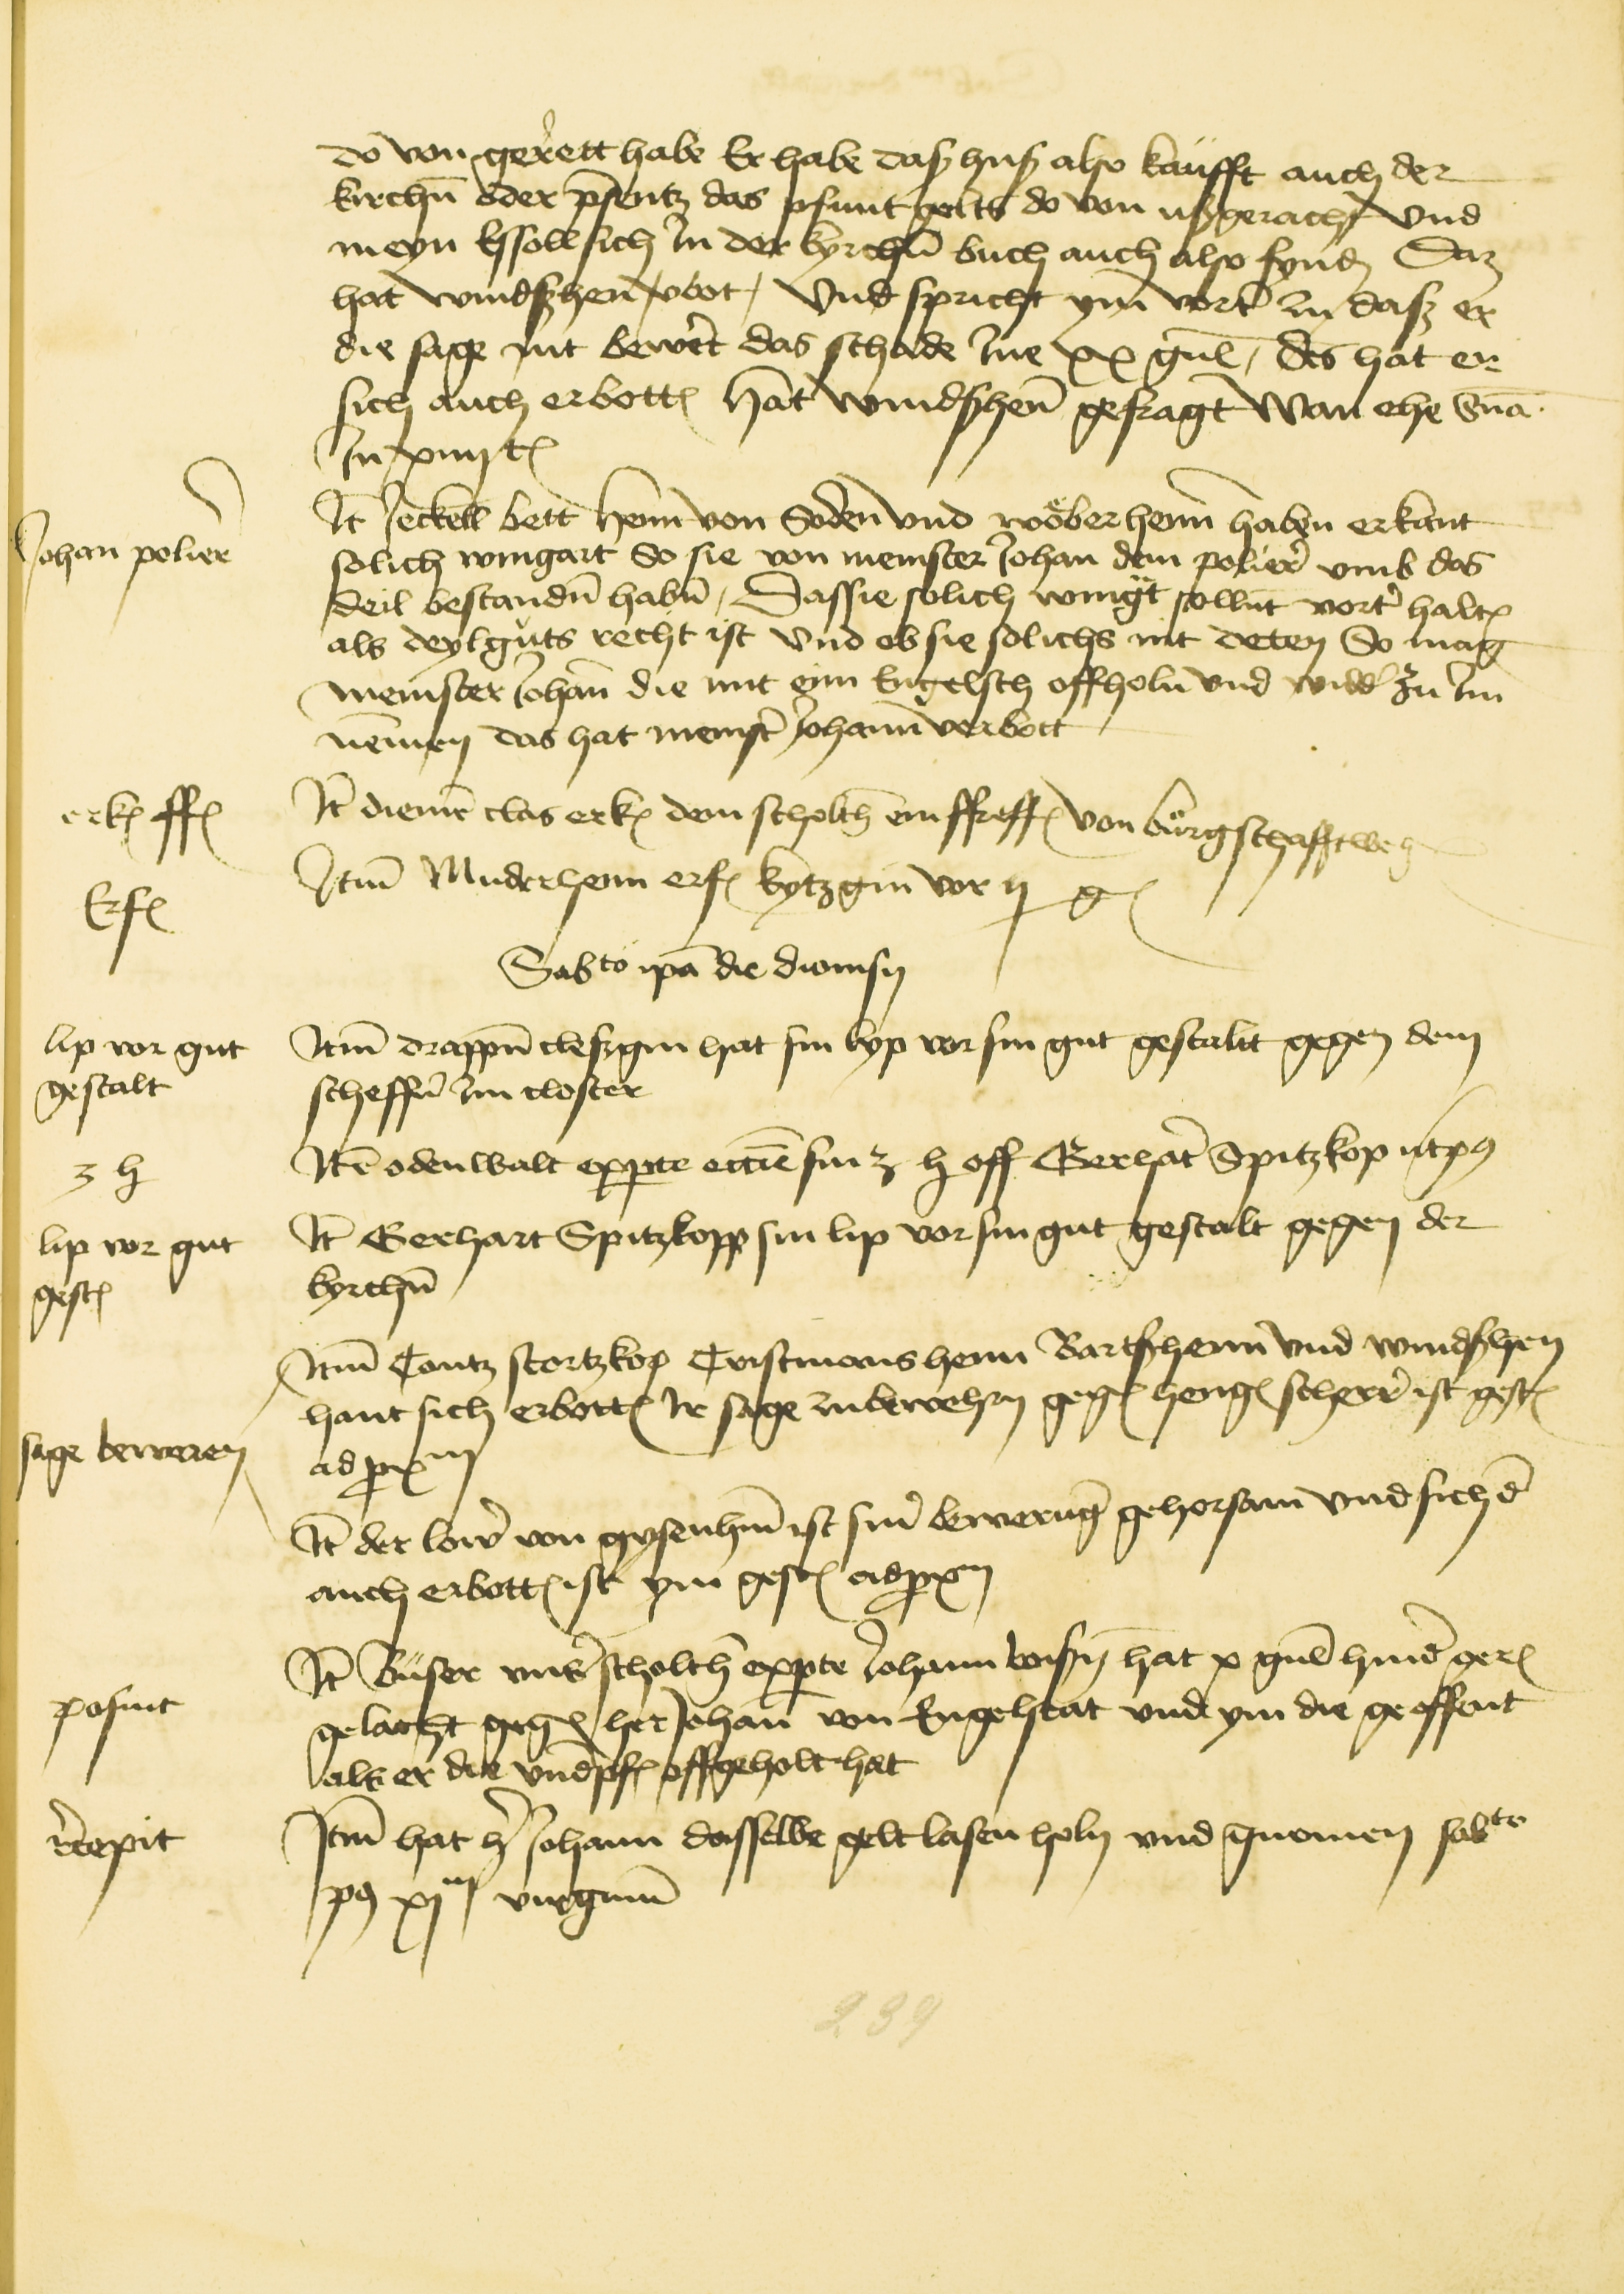 do von gerett habe Er habe dasz husz also kaüfft auch der
kirchn̄ oder p̄sentz das pfunt gelts do von uszgeracht Vnd
meyn Es soll sich in der kyrchn̄ buch auch also fynd Daz
hat windszhen̄ vbot / Vnd spricht ym vort zu dasz er
die sage nit bewert das schade ime xx guld / des hat er
sich auch erbott hat windszhen̄ gefragt Wan ehe s̄nā
In xiiij t
Johan polier
It Jeckell bett henn von Soden vnd wöber henn haben erkant
solich wingart So sie von meinster Johan dem polier vmb das
deil bestandn̄ habn̄ / Das sie solich wingt sollnt vort halt
als deylguts recht ist Vnd ob sie solichs nit deten So mag
meinster Johan̄ die mit eim Engelsch offholn vnd widd zu im
nēmen das hat meinst Johann verbott
erk ff
It diemr clas erk dem scholth̄ ein ffreff von bürgschafft weg
Erf
Itm̄ Muderhenn erf kytzgin vor ij g
Sabto ip̄a die dionisij
lip vor gut
gestalt
Itm̄ drappn̄ cleszgin hat sin lyp vor sin gut gestalt gegen dem
scheffn̄ im closter
3 h
Itē odenwalt ex p̄te eccīe sin 3 h off Gerhart Spitzkop
lip vor gut
gest
It Gerhart Spitzkopp sin lip vor sin gut gestalt gegen der
kyrchn̄
sage beweren
Itm̄ Contz stortzkop Cristmans henn Bartszhenn vnd windszhen
hant sich erbott ir sage zu bewehrn geg heng scherr ist gest
ad p̄x iij
It der low̄ von gysenhm̄ ist sinr̄ bewerūg gehorsam vnd sich d
auch erbott ist ym gest ad p̄x iij
posuit
It Büser vns scholth̄ ex p̄te Johann boiszen hat x guld hind ger
gelacht geg her Johan̄ von Engelstat vnd ym die geoffent
als er die vnd pf offgeholt hat
recepit
Itm̄ hat h Johann dasselbe gelt lasen holn vnd gnomen sabto
p9 xj m virginū
239